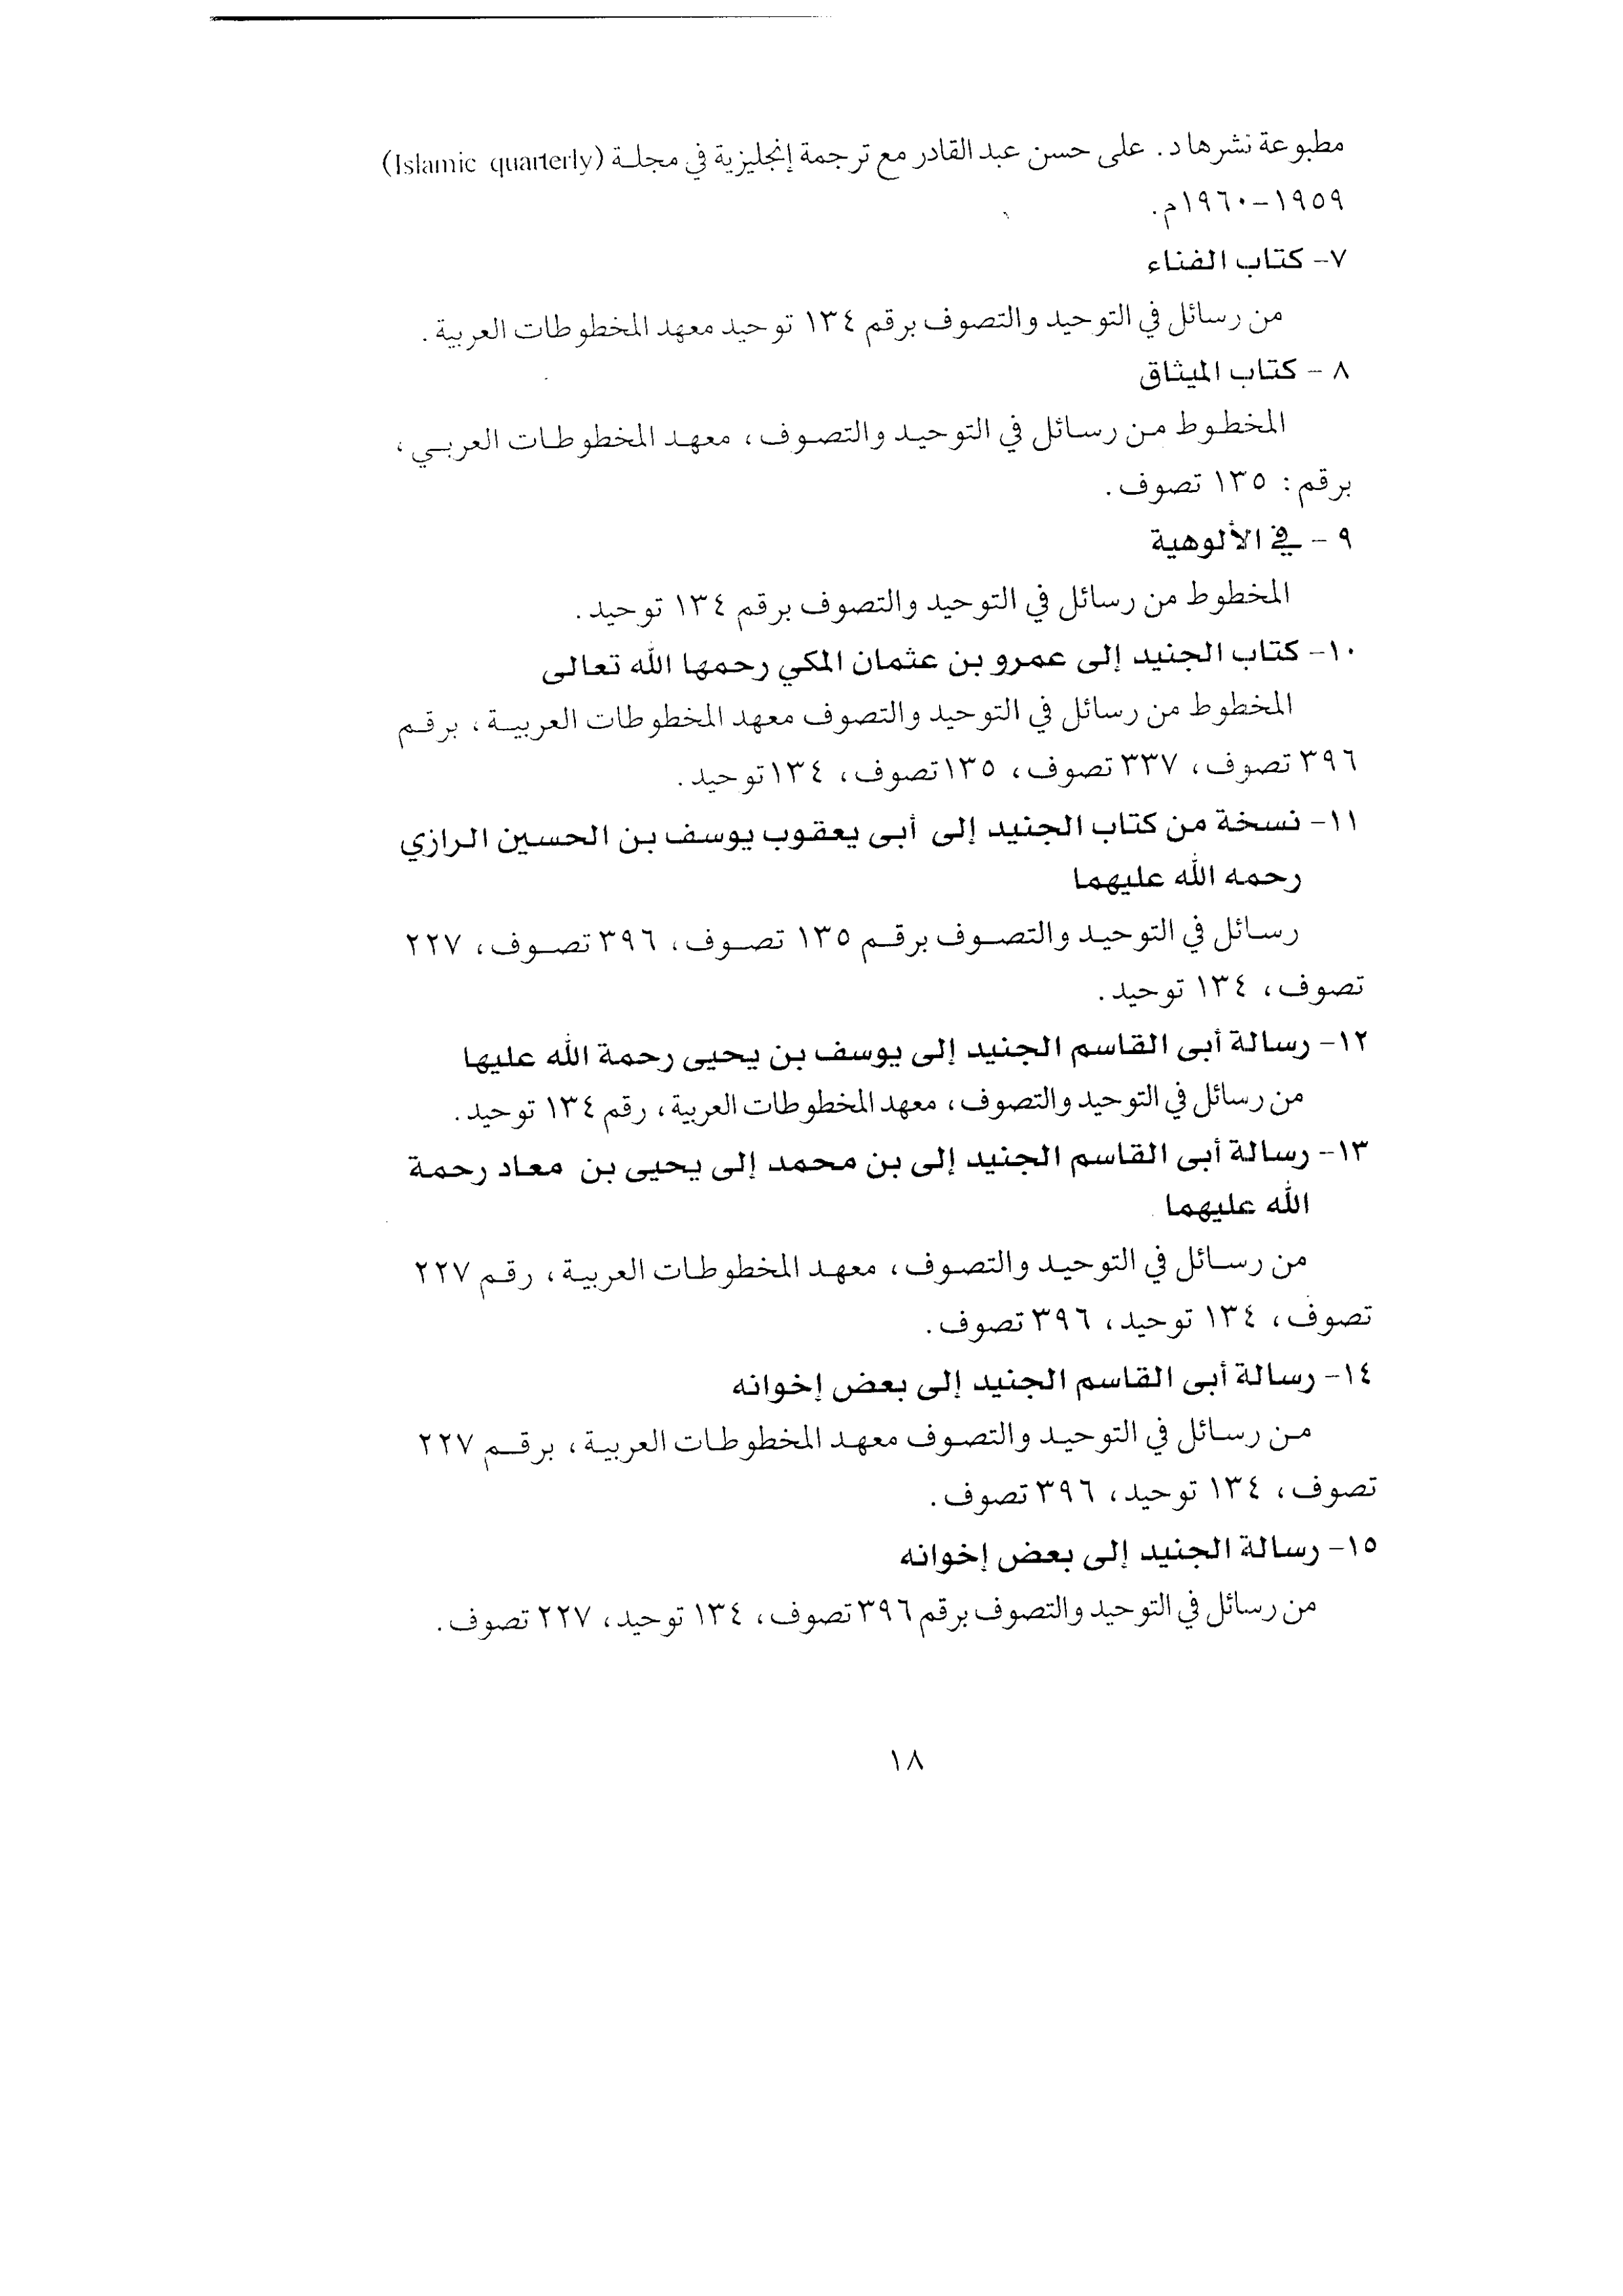 مطبوعة نشرها د. على حسن عبد القادر مع ترجمة إنجليزية في مجلة (Islamic quarterly)
١٩٥٩-١٩٦٠م.
٧- كتاب الفناء
من رسائل في التوحيد والتصوف برقم ١٣٤ توحيد معهد المخطوطات العربية.
٨ - كتاب الميثاق
المخطوط من رسائل في التوحيد والتصوف، معهد المخطوطات العربي،
برقم: ١٣٥ تصوف.
٩ - في الألوهية
المخطوط من رسائل في التوحيد والتصوف برقم ١٣٤ توحيد.
١٠- كتاب الجنيد إلى عمرو بن عثمان المكي رحمها الله تعالى
المخطوط من رسائل في التوحيد والتصوف معهد المخطوطات العربية، برقم
٣٩٦ تصوف، ٣٣٧ تصوف، ١٣٥ تصوف، ١٣٤ توحيد.
١١- نسخة من كتاب الجنيد إلى أبى يعقوب يوسف بن الحسين الرازي
رحمه الله عليهما
رسائل في التوحيد والتصوف برقم ١٣٥ تصوف، ٣٩٦ تصوف، ٢٢٧
تصوف، ١٣٤ توحيد.
١٢- رسالة أبى القاسم الجنيد إلى يوسف بن يحيى رحمة الله عليها
من رسائل في التوحيد والتصوف، معهد المخطوطات العربية، رقم ١٣٤ توحيد.
١٣- رسالة أبى القاسم الجنيد إلى بن محمد إلى يحيى بن معاد رحمة
الله عليهما
من رسائل في التوحيد والتصوف، معهد المخطوطات العربية، رقم ٢٢٧
تصوف، ١٣٤ توحيد، ٣٩٦ تصوف.
١٤- رسالة أبى القاسم الجنيد إلى بعض إخوانه
من رسائل في التوحيد والتصوف معهد المخطوطات العربية، برقم ٢٢٧
تصوف، ١٣٤ توحيد، ٣٩٦ تصوف.
١٥- رسالة الجنيد إلى بعض إخوانه
من رسائل في التوحيد والتصوف برقم ٣٩٦ تصوف، ١٣٤ توحيد، ٢٢٧ تصوف.
١٨